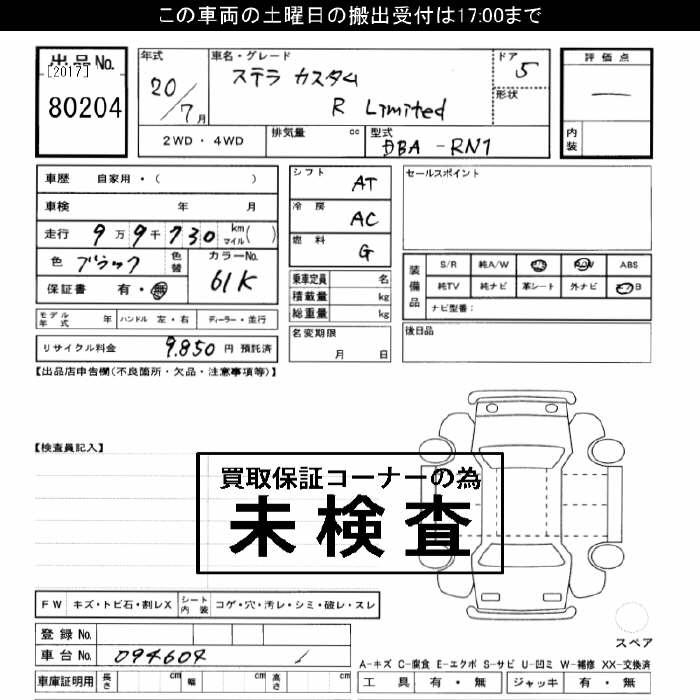 この車両の土曜日の搬出受付は17:00まで
出品No.
[2017]
80204
年式
20/7月
車名・グレード
ステラ カスタム
R Limited
ドア
5
形状
評価点
—
内装
2WD・4WD
排気量 cc
型式
DBA-RN1
車歴 自家用・( )
車検 年 月
走行 9万9千730 km マイル( )
色 ブラック
色替
カラーNo.
61K
保証書 有・無
モデル年式 年
ハンドル 左・右
ディーラー・並行
リサイクル料金 9.850 円 預託済
シフト AT
冷房 AC
燃料 G
乗車定員 名
積載量 kg
総重量 kg
名変期限
月 日
セールスポイント
装備品
S/R 純A/W ABS
純TV 純ナビ 革シート 外ナビ
ナビ型番:
後日品
【出品店申告欄(不良箇所・欠品・注意事項等)】
【検査員記入】
買取保証コーナーの為
未検査
FW キズ・トビ石・割レX
シート内装 コゲ・穴・汚レ・シミ・破レ・スレ
登録No.
車台No. 094604
車庫証明用 長さ cm 幅 cm 高さ cm
スペア
A-キズ C-腐食 E-エクボ S-サビ U-凹ミ W-補修 XX-交換済
工具 有・無 ジャッキ 有・無